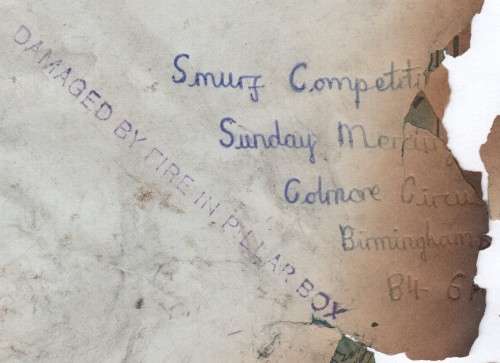 DAMAGED BY FIRE IN PILLAR BOX
Smurf Competiti
Sunday Mercury
Colmore Circus
Birmingham
B4 6